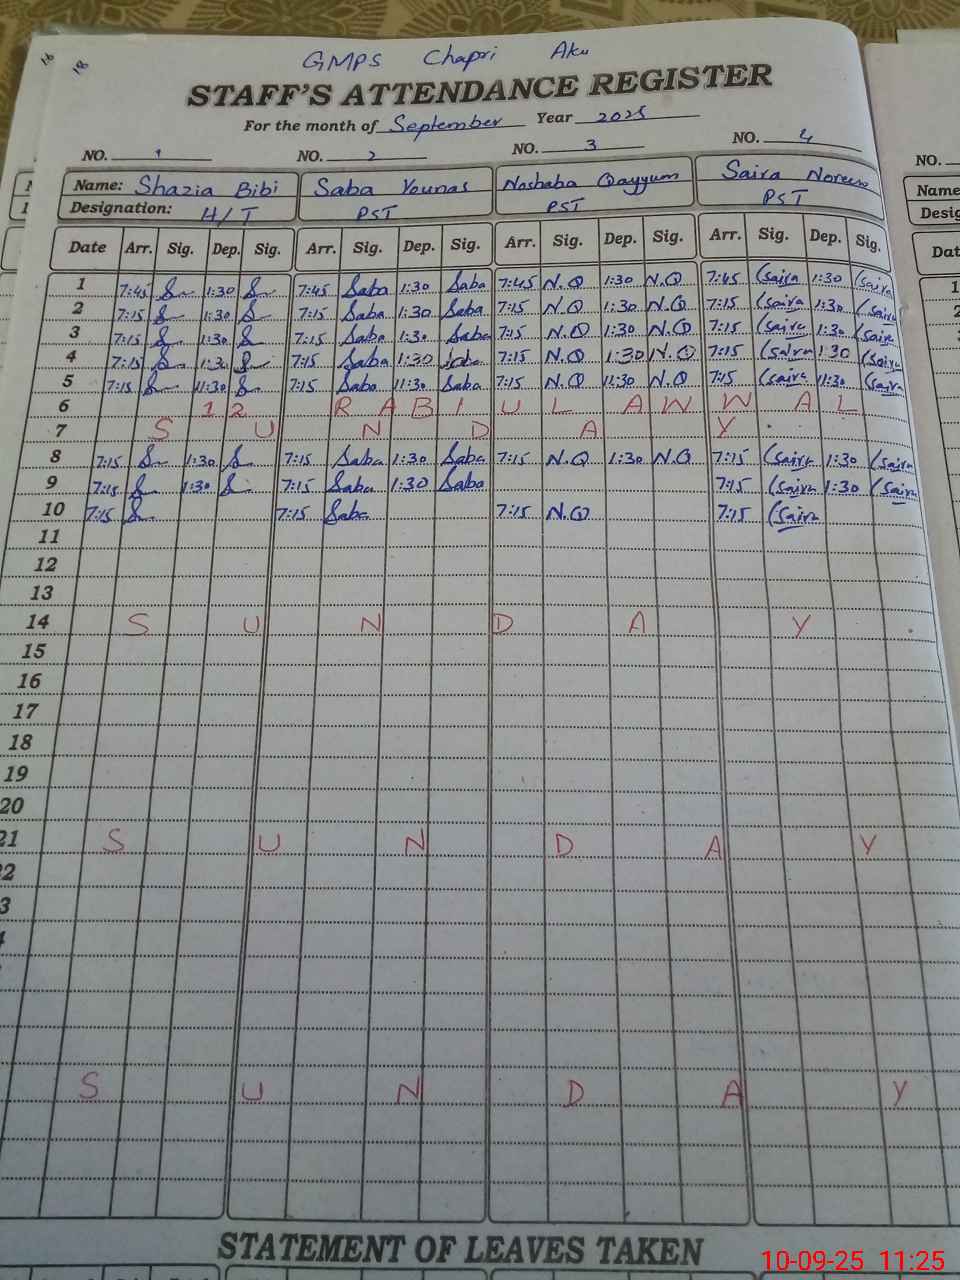 18 18
GMPS Chapri Aku
STAFF'S ATTENDANCE REGISTER
For the month of September Year 2025
NO. 1 NO. 2 NO. 3 NO. 4 NO.
Name: Shazia Bibi Saba Younas Nosbaba Qayyum Saira Noreen Name
Designation: H/T PST PST PST Desig
Date Arr. Sig. Dep. Sig. Arr. Sig. Dep. Sig. Arr. Sig. Dep. Sig. Arr. Sig. Dep. Sig. Dat
1 7:45 1:30 7:45 Saba 1:30 Saba 7:45 N.Q 1:30 N.Q 7:45 Saira 1:30 Saira 1
2 7:15 1:30 7:15 Saba 1:30 Saba 7:15 N.Q 1:30 N.Q 7:15 Saira 1:30 Saira 2
3 7:15 1:30 7:15 Saba 1:30 Saba 7:15 N.Q 1:30 N.Q 7:15 Saira 1:30 Saira 3
4 7:15 1:30 7:15 Saba 1:30 Saba 7:15 N.Q 1:30 N.Q 7:15 Saira 1:30 Saira
5 7:15 11:30 7:15 Saba 11:30 Saba 7:15 N.Q 11:30 N.Q 7:15 Saira 11:30 Saira
6 12 RABIUL AWWAL
7 SUNDAY
8 7:15 1:30 7:15 Saba 1:30 Saba 7:15 N.Q 1:30 N.Q 7:15 Saira 1:30 Saira
9 7:15 1:30 7:15 Saba 1:30 Saba 7:15 Saira 1:30 Saira
10 7:15 7:15 Saba 7:15 N.Q 7:15 Saira
11
12
13
14 SUNDAY
15
16
17
18
19
20
21 SUNDAY
2
3
SUNDAY
STATEMENT OF LEAVES TAKEN
10-09-25 11:25